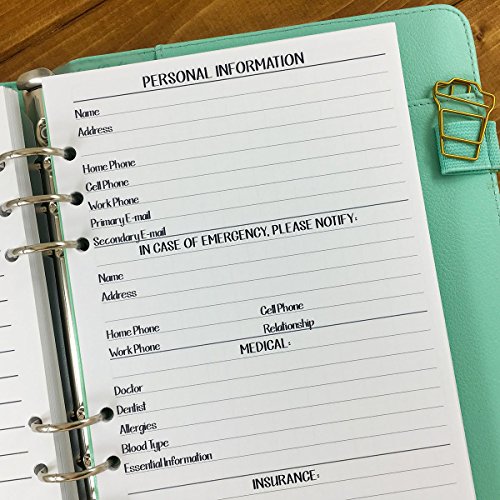 PERSONAL INFORMATION
Name
Address
Home Phone
Cell Phone
Work Phone
Primary E-mail
Secondary E-mail
IN CASE OF EMERGENCY, PLEASE NOTIFY:
Name
Address
Home Phone Cell Phone
Work Phone Relationship
MEDICAL:
Doctor
Dentist
Allergies
Blood Type
Essential Information
INSURANCE: